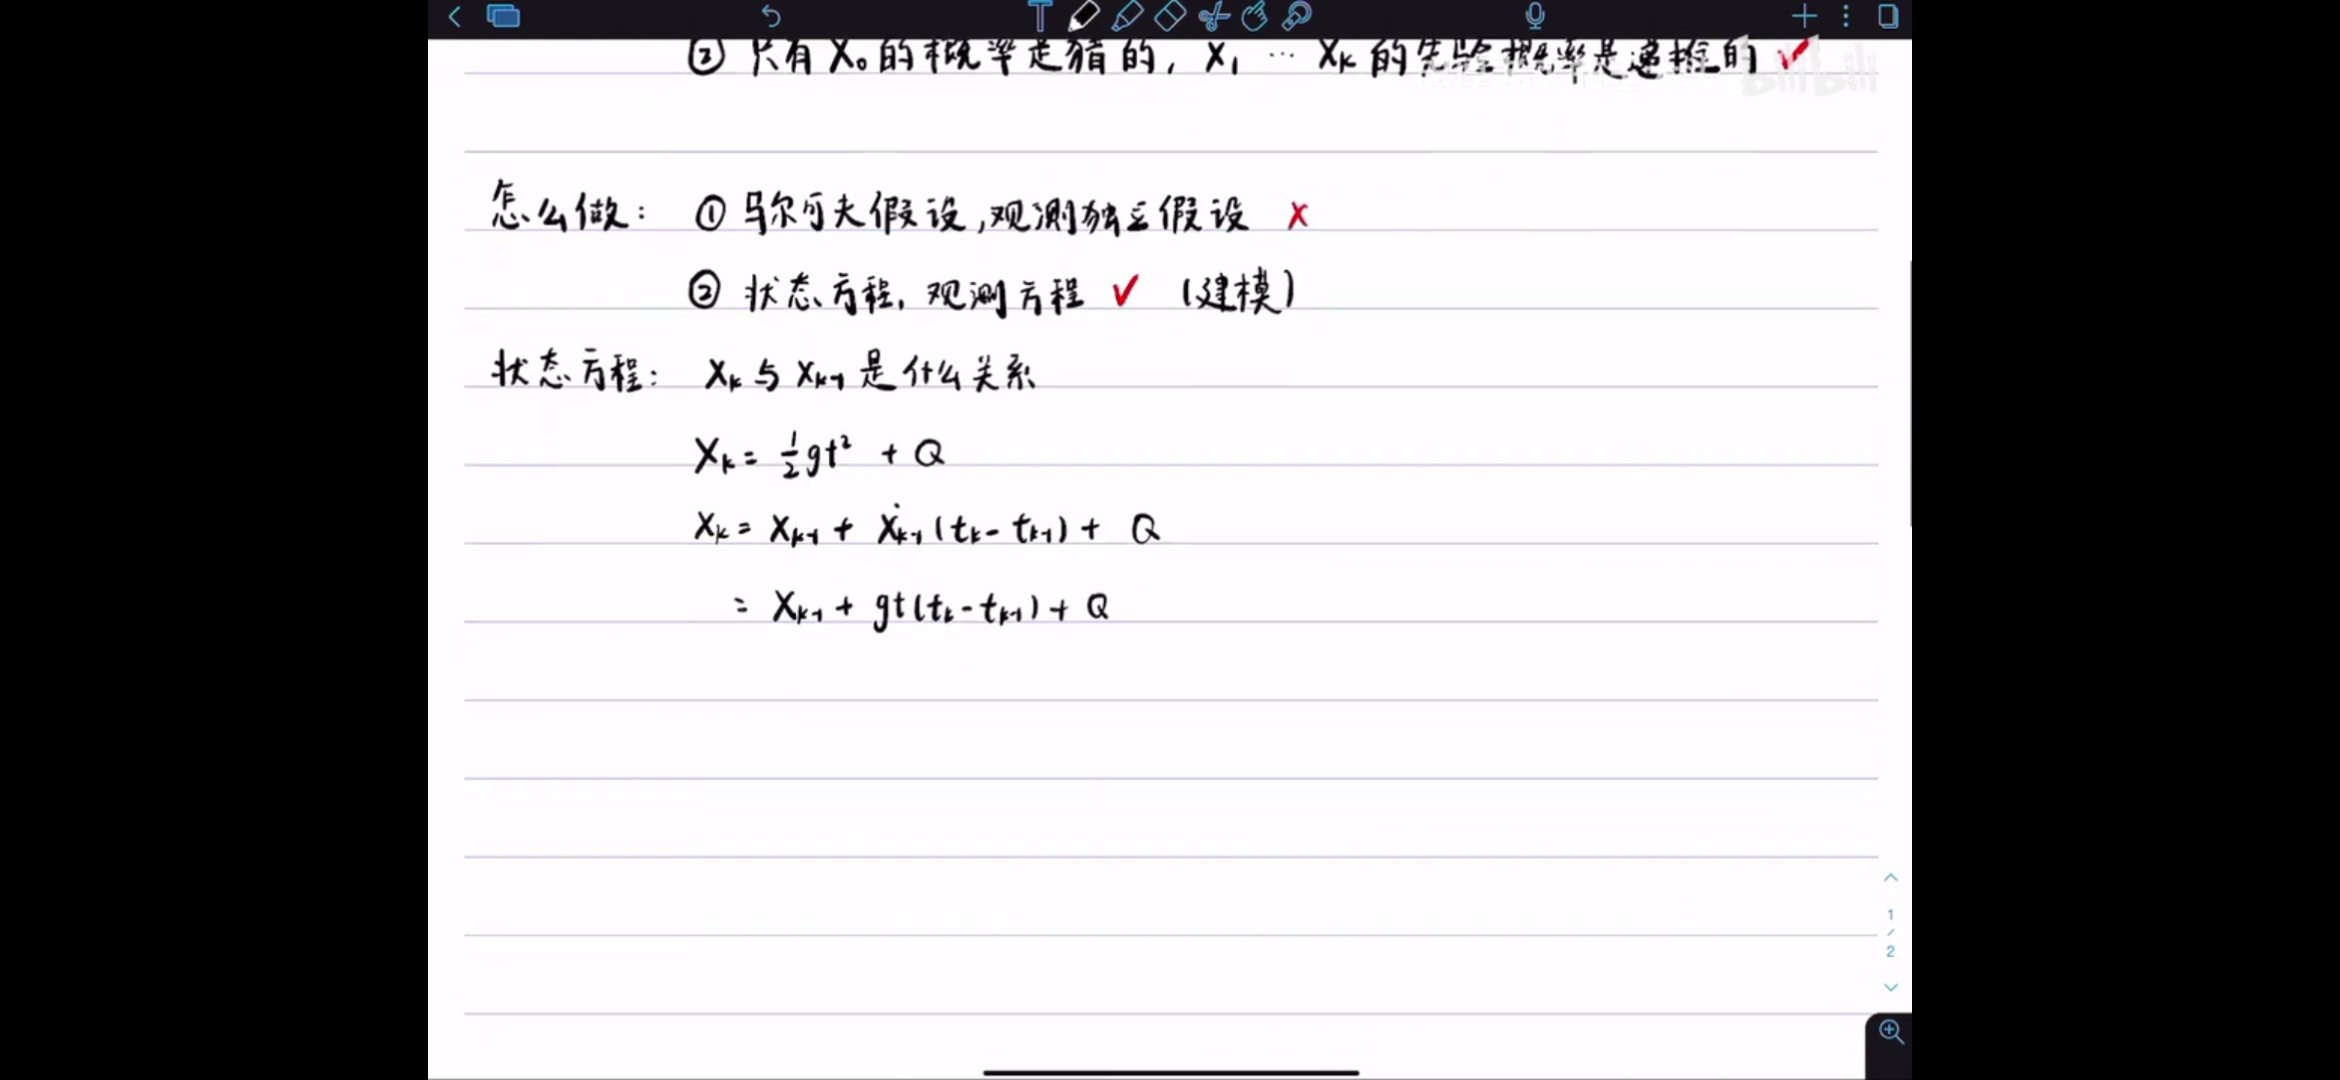 ② 只有 X₀ 的概率是猜的, X₁ … Xₖ 的先验概率是递推的 ✓
怎么做: ① 马尔可夫假设,观测独立假设 ✗
② 状态方程, 观测方程 ✓ (建模)
状态方程: Xₖ 与 Xₖ₋₁ 是什么关系
Xₖ = ½gt² + Q
Xₖ = Xₖ₋₁ + Ẋₖ₋₁(tₖ - tₖ₋₁) + Q
= Xₖ₋₁ + gt(tₖ - tₖ₋₁) + Q
1
/
2